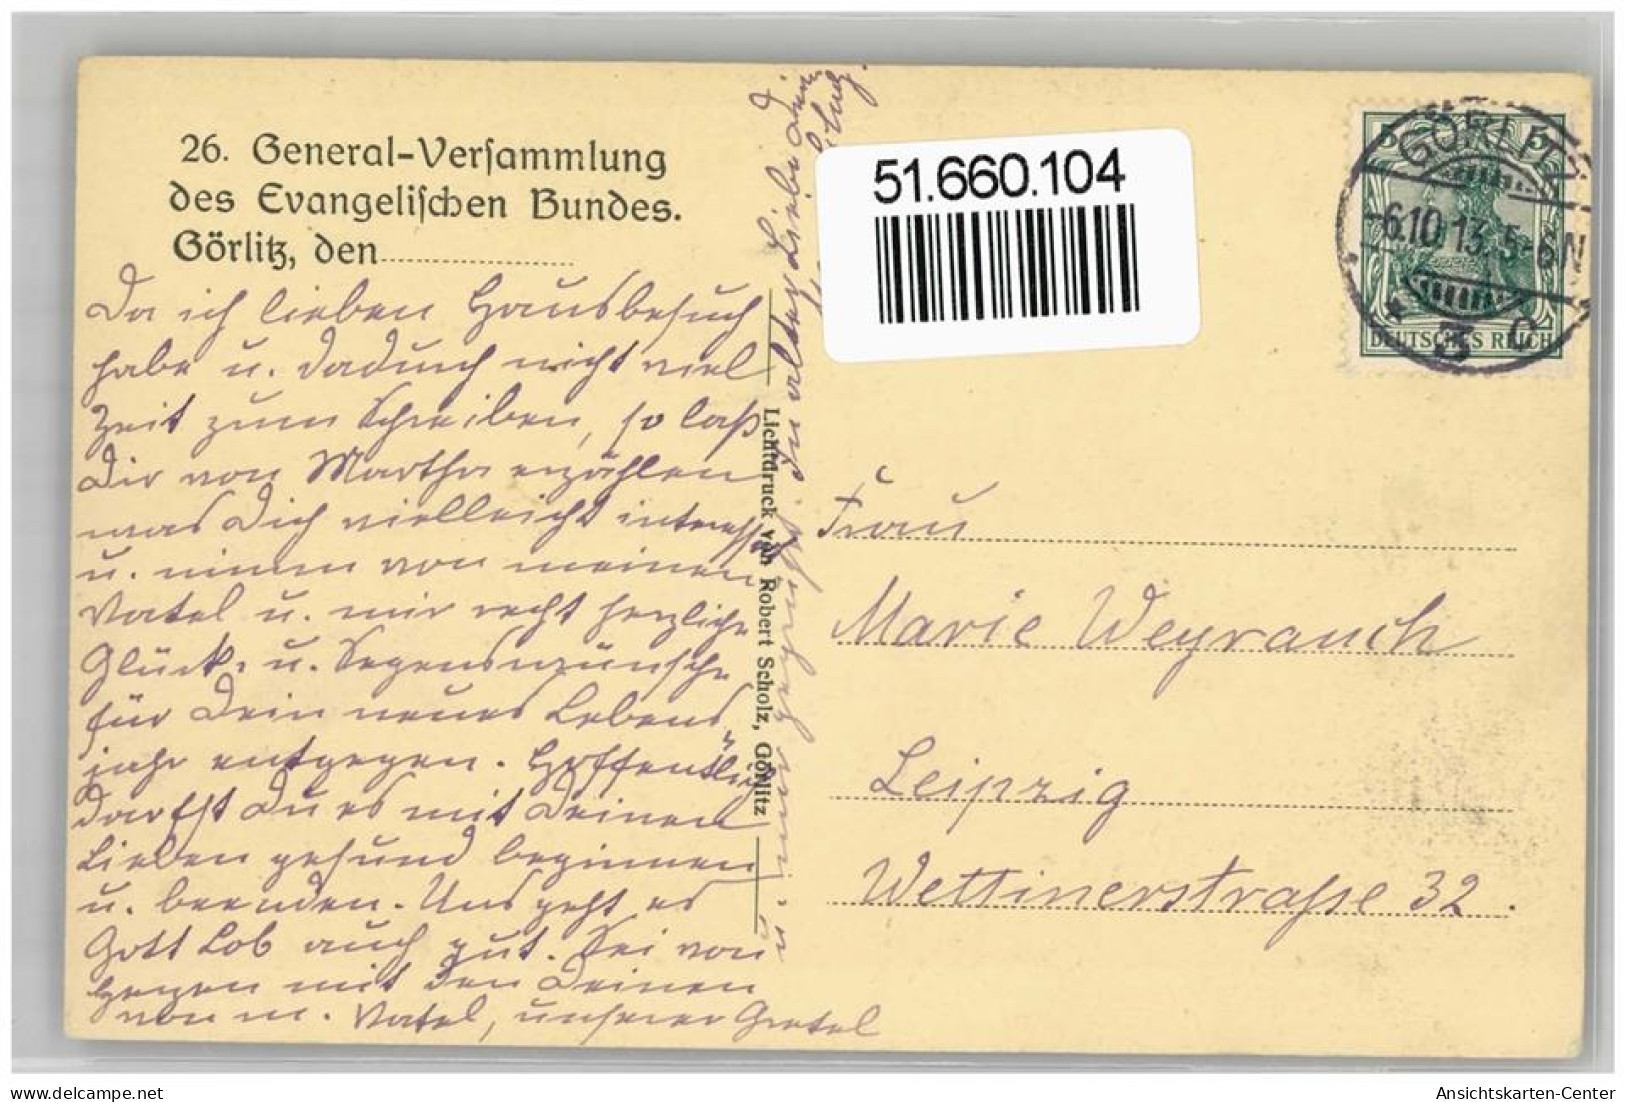 26. General-Versammlung
des Evangelischen Bundes.
Görlitz, den
Da ich lieben Hausbesuch
habe u. dadurch nicht viel
Zeit zum Schreiben, so laß
Dir von Martha erzählen
was Dich vielleicht interessiert
u. nimm von meinem
Vatel u. mir recht herzliche
Glück- u. Segenswünsche
für Dein neues Lebens
jahr entgegen. Hoffentlich
darfst Du es mit Deinen
Lieben gesund beginnen
u. beenden. Uns geht es
Gott Lob auch gut. Sei von
Herzen mit den Deinen
von m. Vatel, unserer Gretel
u. mir gegrüßt. In alter Liebe Deine
Lichtdruck von Robert Scholz, Görlitz
51.660.104
5 5
DEUTSCHES REICH
GÖRLITZ
-6.10.13.5-6N
* 3 c
Frau
Marie Weyrauch
Leipzig
Wettinerstraße 32.
Ansichtskarten-Center